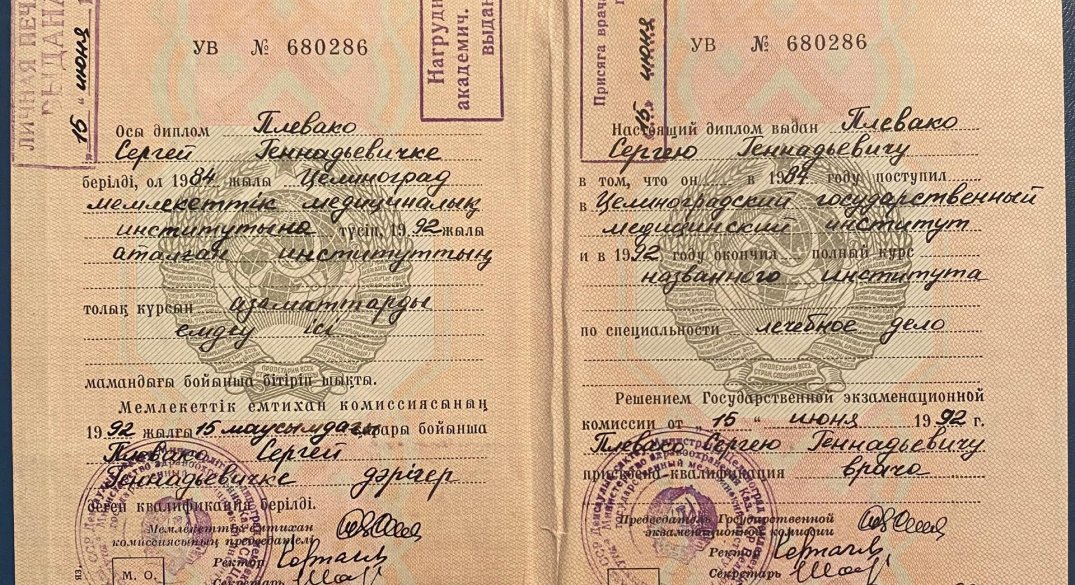 ЛИЧНАЯ ПЕЧ
ВЫДАНА
"15" июня
УВ № 680286
Нагрудн
академич.
выдан
Осы диплом Плевако
Сергей Геннадьевичке
берілді, ол 1984 жылы Целиноград
мемлекеттік медициналық
институтына түсіп, 1992 жылы
аталған институттың
толық курсын азаматтарды
емдеу ісі
мамандығы бойынша бітіріп шықты.
Мемлекеттік емтихан комиссиясының
1992 жылғы 15 маусымдағы бойынша
Плевако Сергей
Геннадьевичке дәрігер
деген квалификация берілді.
Мемлекеттік емтихан
комиссиясының председателі
Ректор
Секретарь
М. О.
УВ № 680286
Присяга врача
"15" июня
Настоящий диплом выдан Плевако
Сергею Геннадьевичу
в том, что он в 1984 году поступил
в Целиноградский государственный
медицинский институт
и в 1992 году окончил полный курс
названного института
по специальности лечебное дело
ПРОЛЕТАРИИ ВСЕХ
СТРАН, СОЕДИНЯЙТЕСЬ!
Решением Государственной экзаменационной
комиссии от "15" июня 1992 г.
Плевако Сергею Геннадьевичу
присвоена квалификация врача
Председатель Государственной
экзаменационной комиссии
Ректор
Секретарь
М. П.